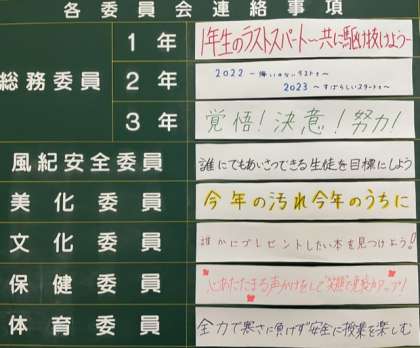 各委員会連絡事項
総務委員
1年 1年生のラストスパート~共に駆け抜けよう~
2年 2022 ~悔いのないラストを~
2023 ~すばらしいスタートを~
3年 覚悟!決意!努力!
風紀安全委員 誰にでもあいさつできる生徒を目標にしよう
美化委員 今年の汚れ今年のうちに
文化委員 誰かにプレゼントしたい本を見つけよう!
保健委員 心あたたまる声かけをして笑顔で免疫力アップ!
体育委員 全力で寒さに負けず安全に授業を楽しむ